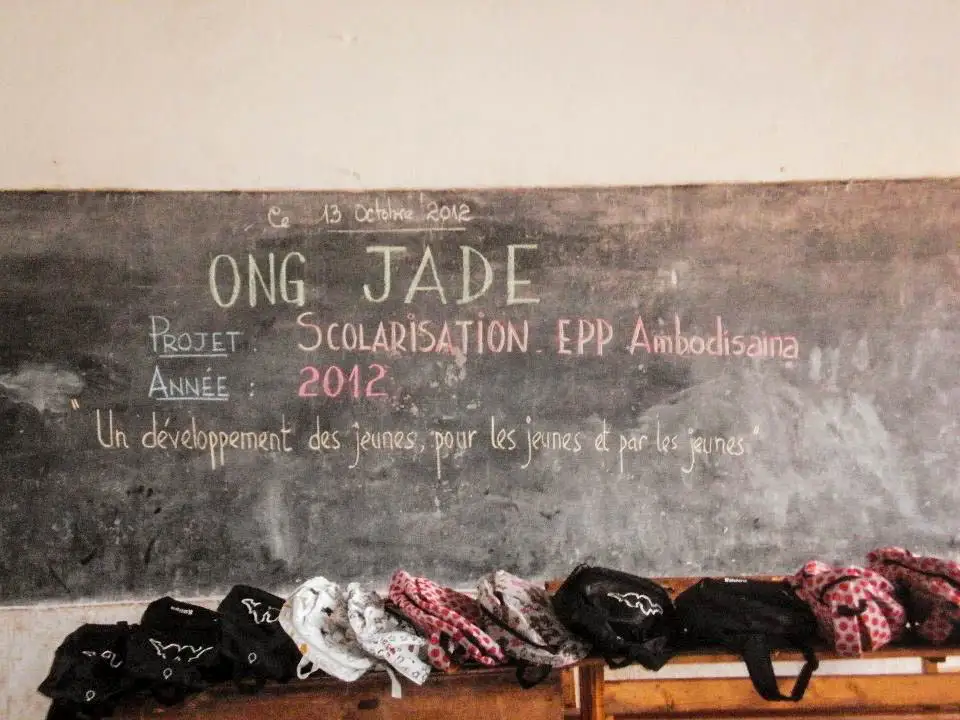 Ce 13 Octobre 2012
ONG JADE
PROJET : SCOLARISATION EPP Ambodisaina
ANNÉE : 2012
"Un développement des jeunes, pour les jeunes et par les jeunes"